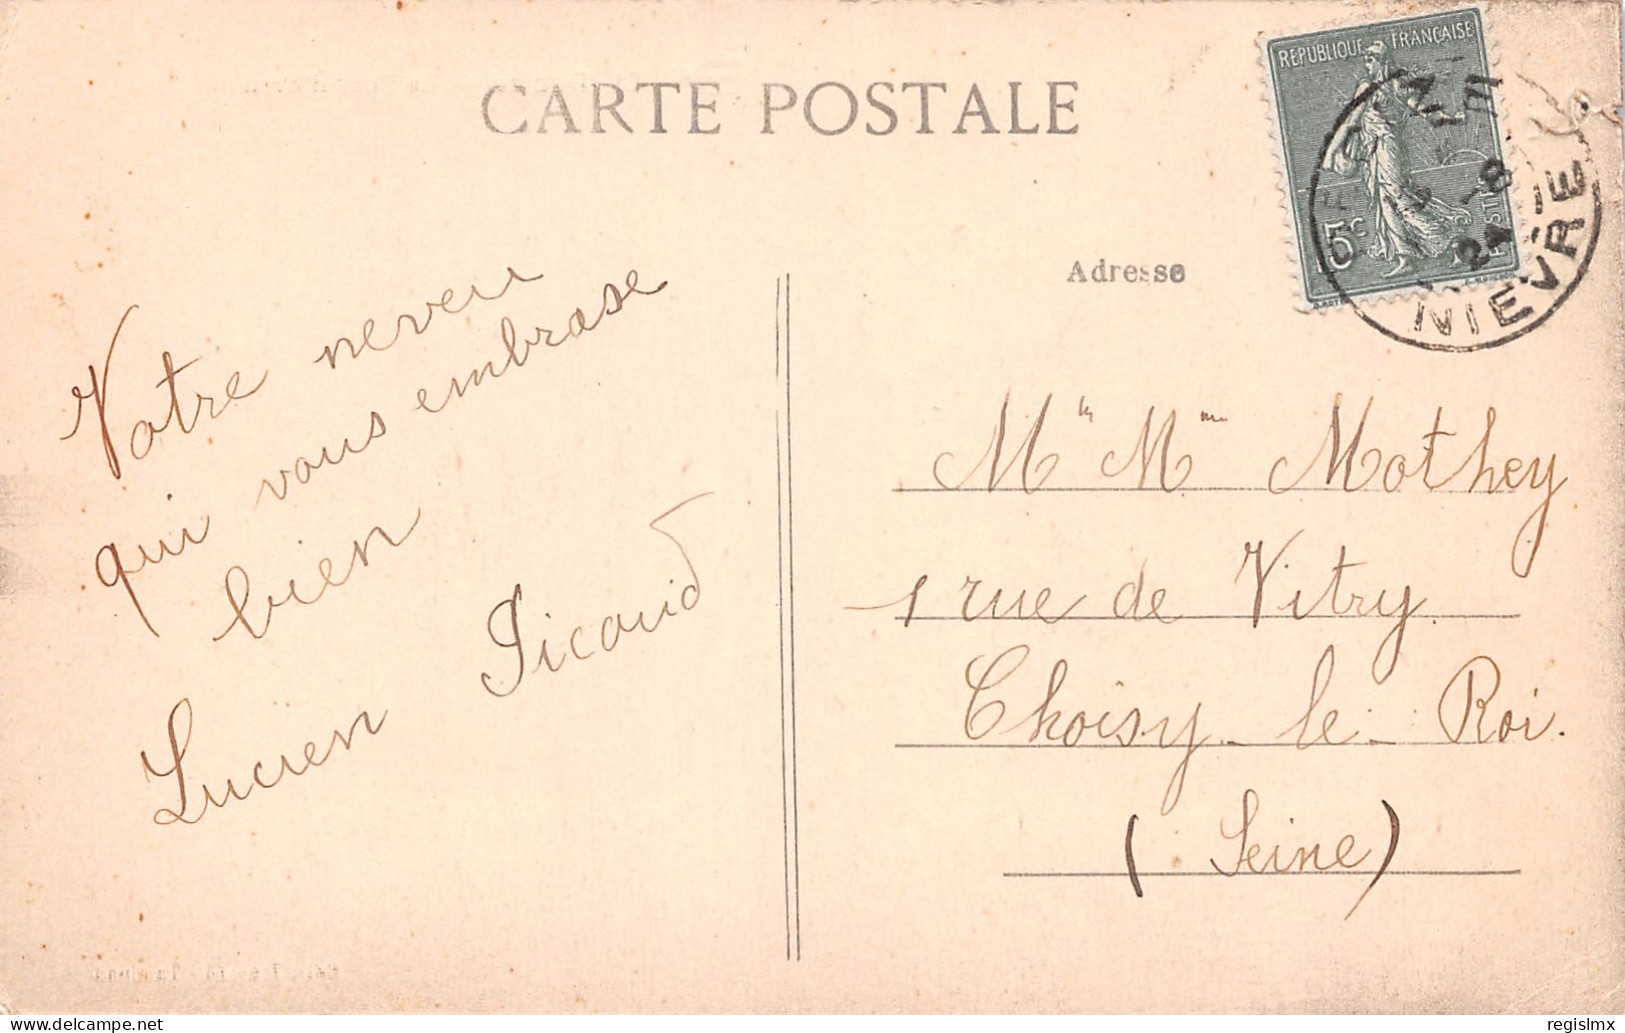 CARTE POSTALE
REPUBLIQUE FRANÇAISE
5c
NIEVRE
Adresse
Votre neveu
qui vous embrase
bien
Lucien Picaud
Mr Mme Mothey
1 rue de Vitry
Choisy-le-Roi.
(Seine)
delcampe.net
regislmx